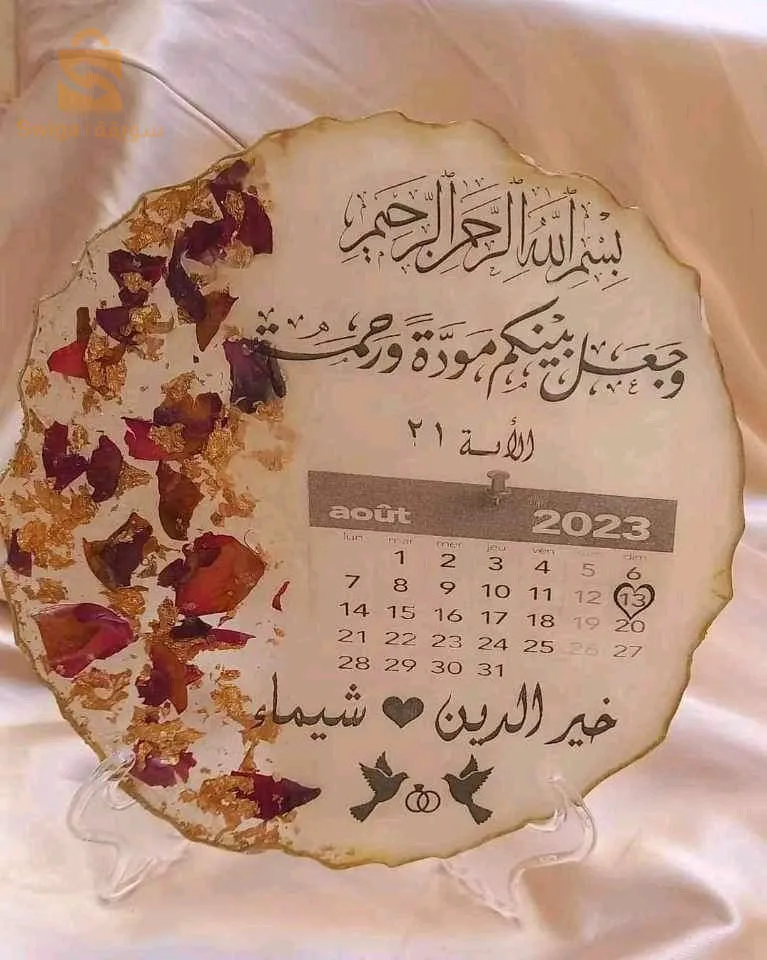 سويقة
بِسْمِ ٱللَّهِ ٱلرَّحْمَٰنِ ٱلرَّحِيمِ
وجعل بينكم مودةً ورحمة
الأية ٢١
août 2023
lun mar mer jeu ven dim
1 2 3 4 5 6
7 8 9 10 11 12 13
14 15 16 17 18 19 20
21 22 23 24 25 26 27
28 29 30 31
خير الدين ♥ شيماء